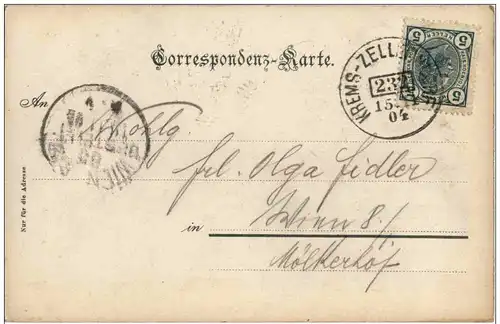 Correspondenz-Karte.
KREMS-ZELL
237
15
04
5 5
5 5
An
Wohlg.
frl. Olga Fidler
in Wien 8./
Mölkerhof
WIEN
Nur für die Adresse